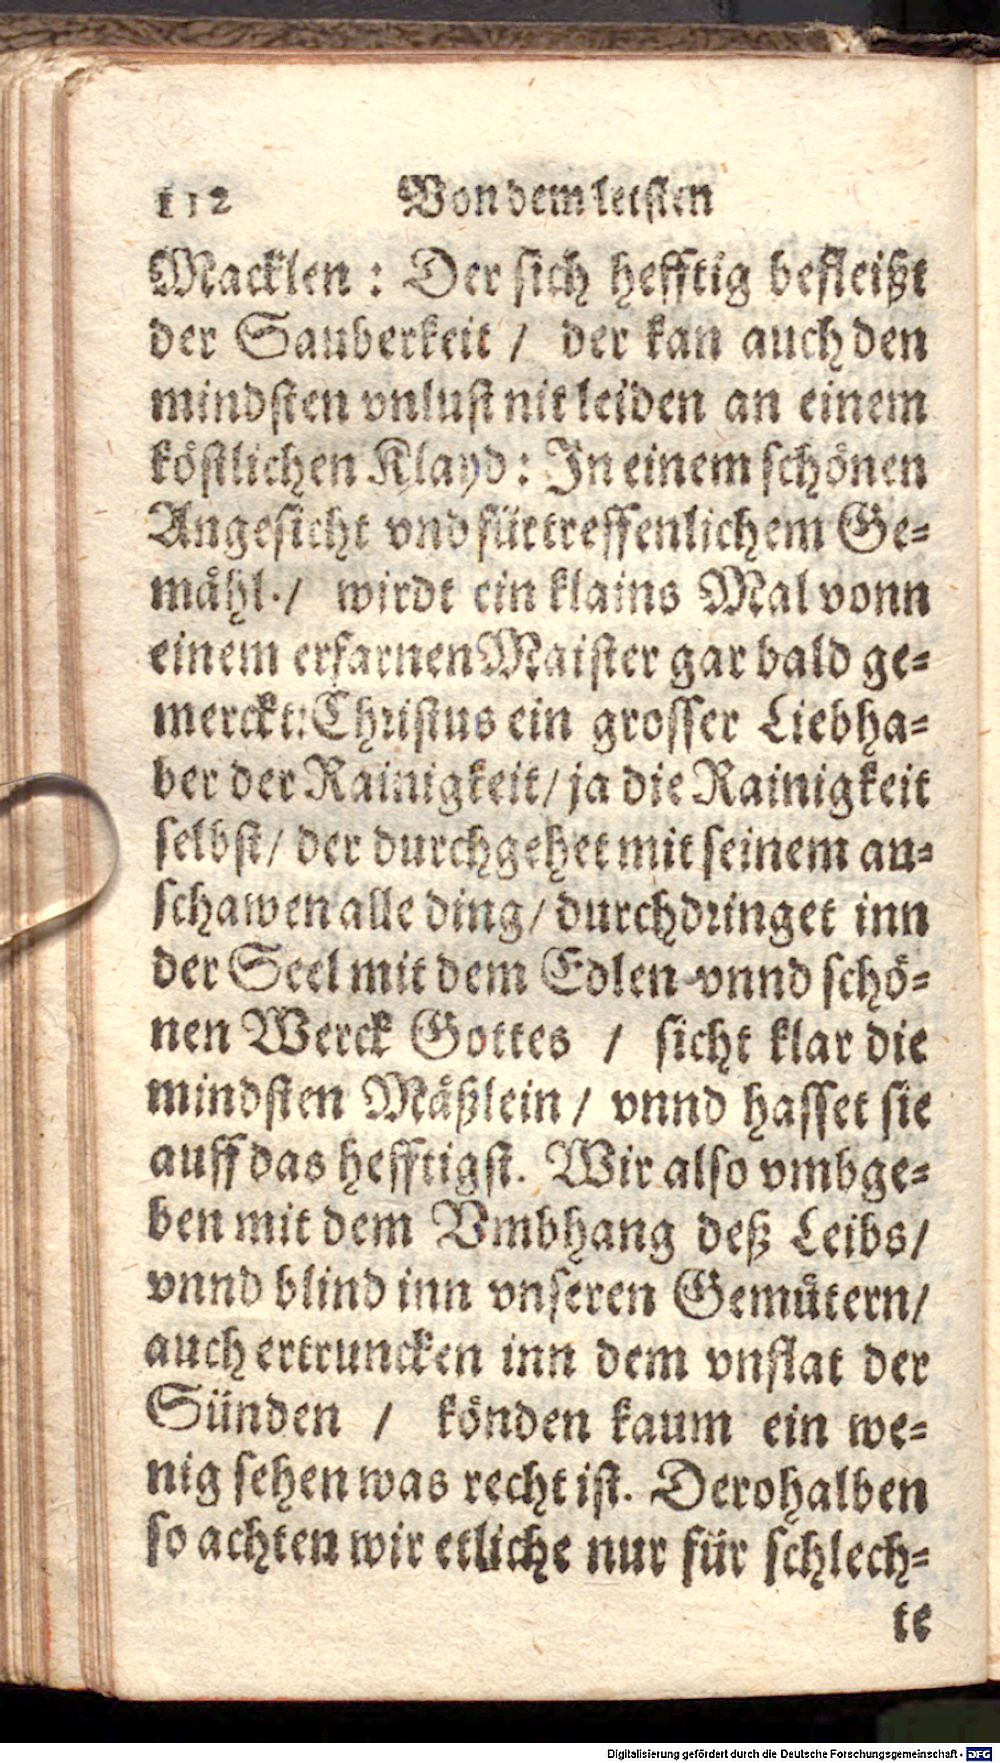 112 Von dem letsten
Macklen : Der sich hefftig befleißt
der Sauberkeit / der kan auch den
mindsten vnlust nit leiden an einem
köstlichen Klayd : In einem schönen
Angesicht vnd fürtreffenlichem Ge-
mähl. / wirdt ein klains Mal vonn
einem erfarnen Maister gar bald ge-
merckt: Christus ein grosser Liebha-
ber der Rainigkeit / ja die Rainigkeit
selbst / der durchgehet mit seinem an-
schawen alle ding / durchdringet inn
der Seel mit dem Edlen vnnd schö-
nen Werck Gottes / sicht klar die
mindsten Mäßlein / vnnd hasset sie
auff das hefftigst. Wir also vmbge-
ben mit dem Vmbhang deß Leibs /
vnnd blind inn vnseren Gemütern /
auch ertruncken inn dem vnflat der
Sünden / könden kaum ein we-
nig sehen was recht ist. Derohalben
so achten wir etliche nur für schlech-
te
Digitalisierung gefördert durch die Deutsche Forschungsgemeinschaft - DFG